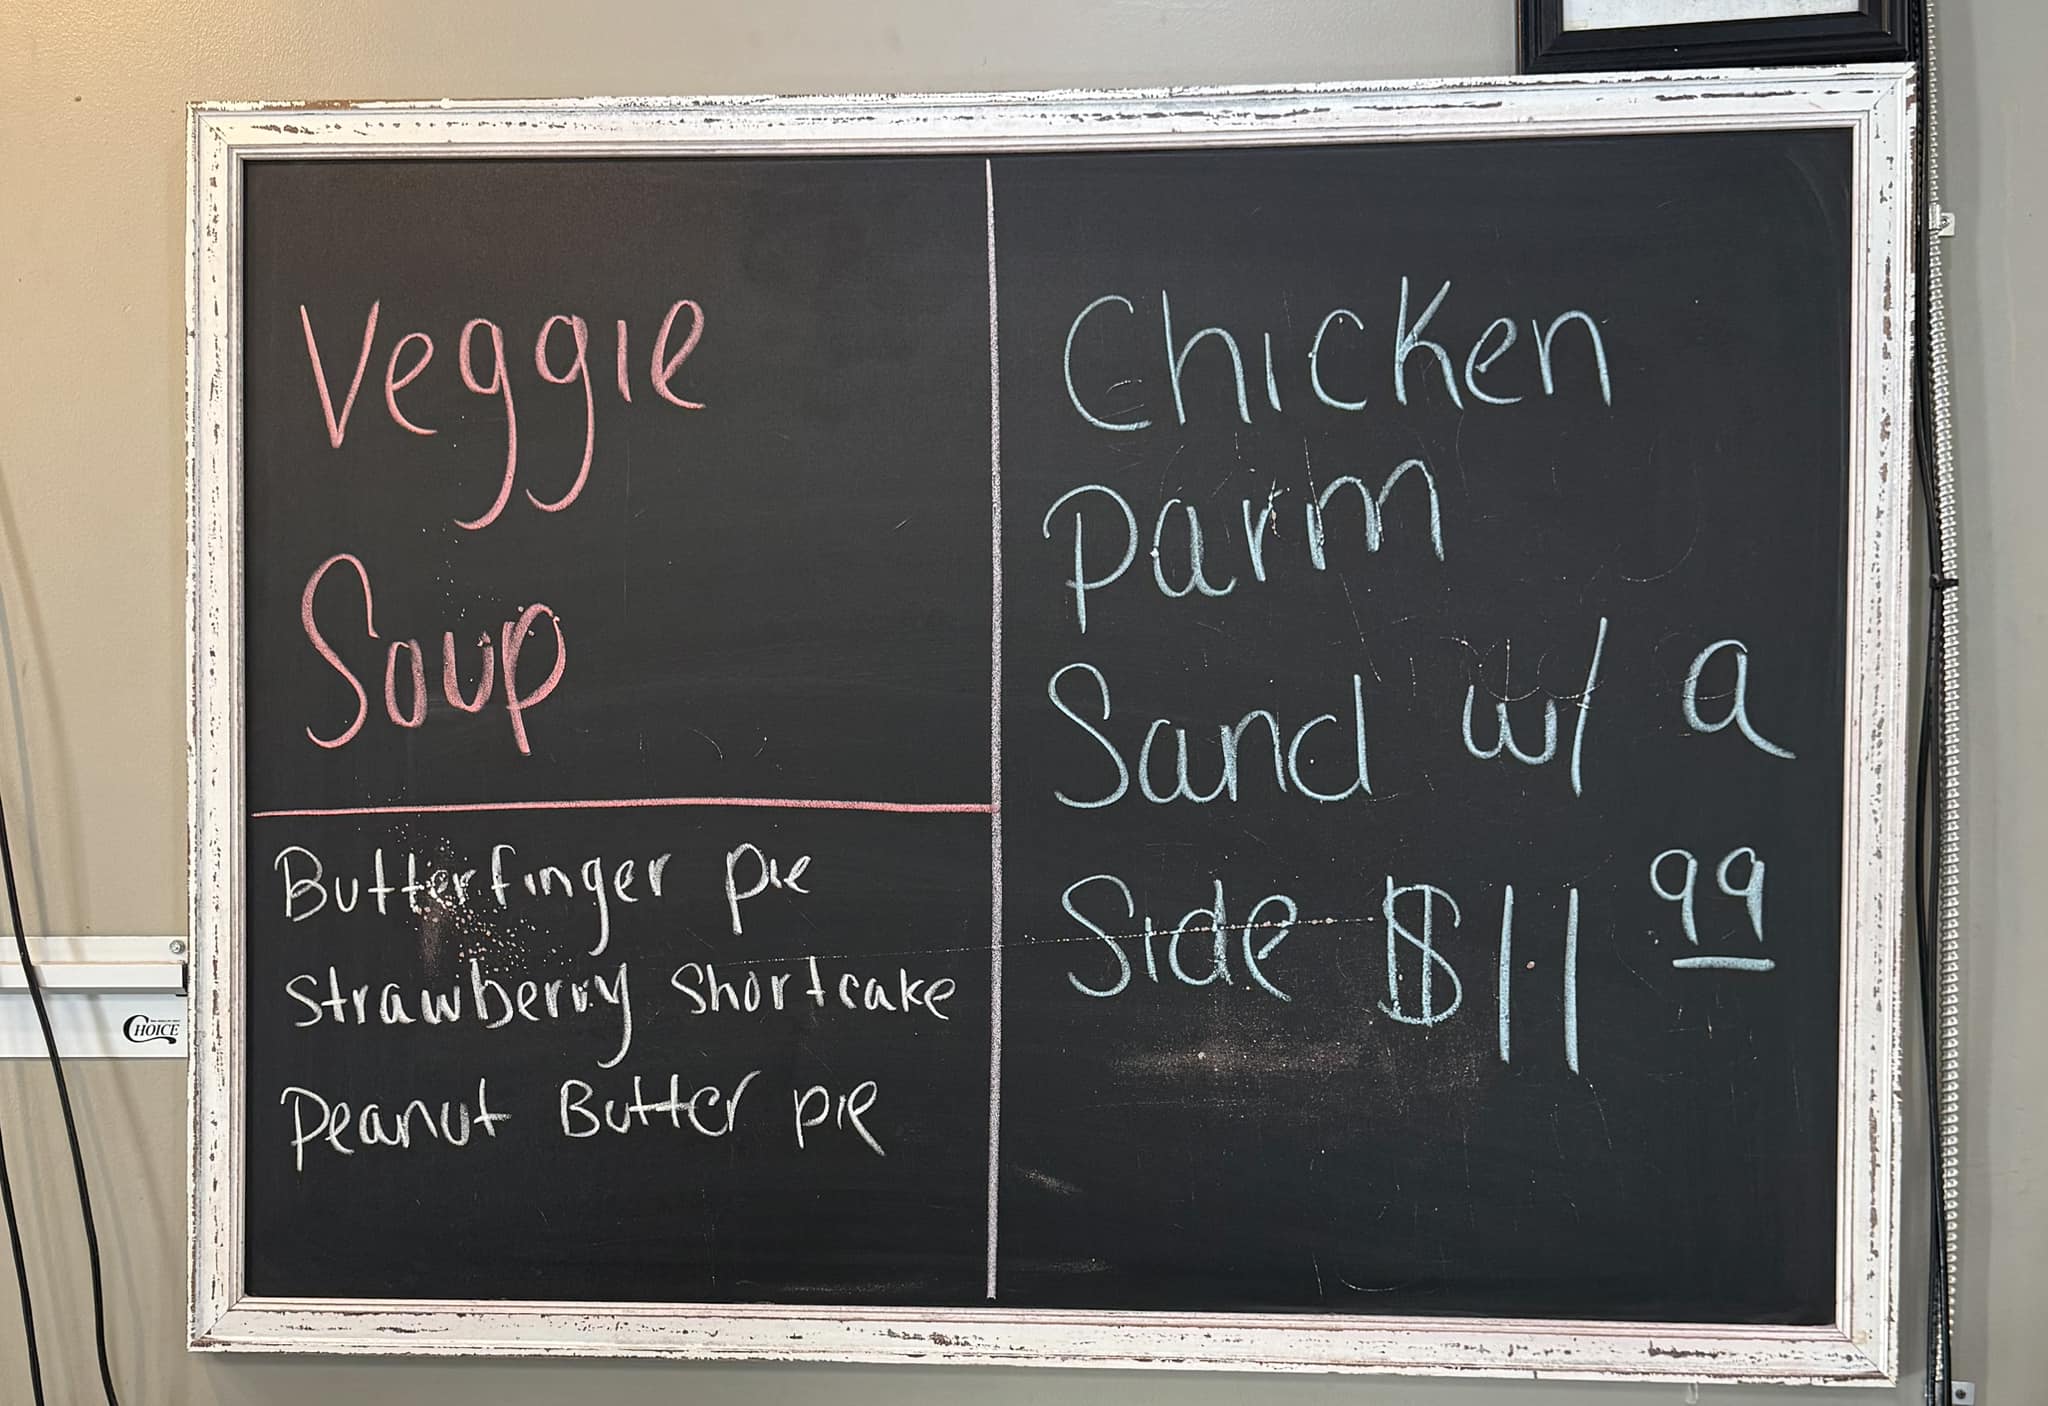 Veggie
Soup
Butterfinger pie
Strawberry Shortcake
Peanut Butter pie
Chicken
Parm
Sand w/ a
Side $11 99
CHOICE